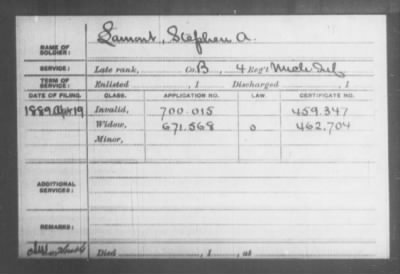 NAME OF SOLDIER: Lamont, Stephen A.
SERVICE: Late rank, Co. B, 4 Reg't Mich Inf
TERM OF SERVICE: Enlisted , 1 Discharged , 1
DATE OF FILING. CLASS. APPLICATION NO. LAW. CERTIFICATE NO.
1889 Apr 19 Invalid, 700.015 459.347
Widow, 671.568 o 462,704
Minor,
ADDITIONAL SERVICES:
REMARKS:
Died , 1 , at